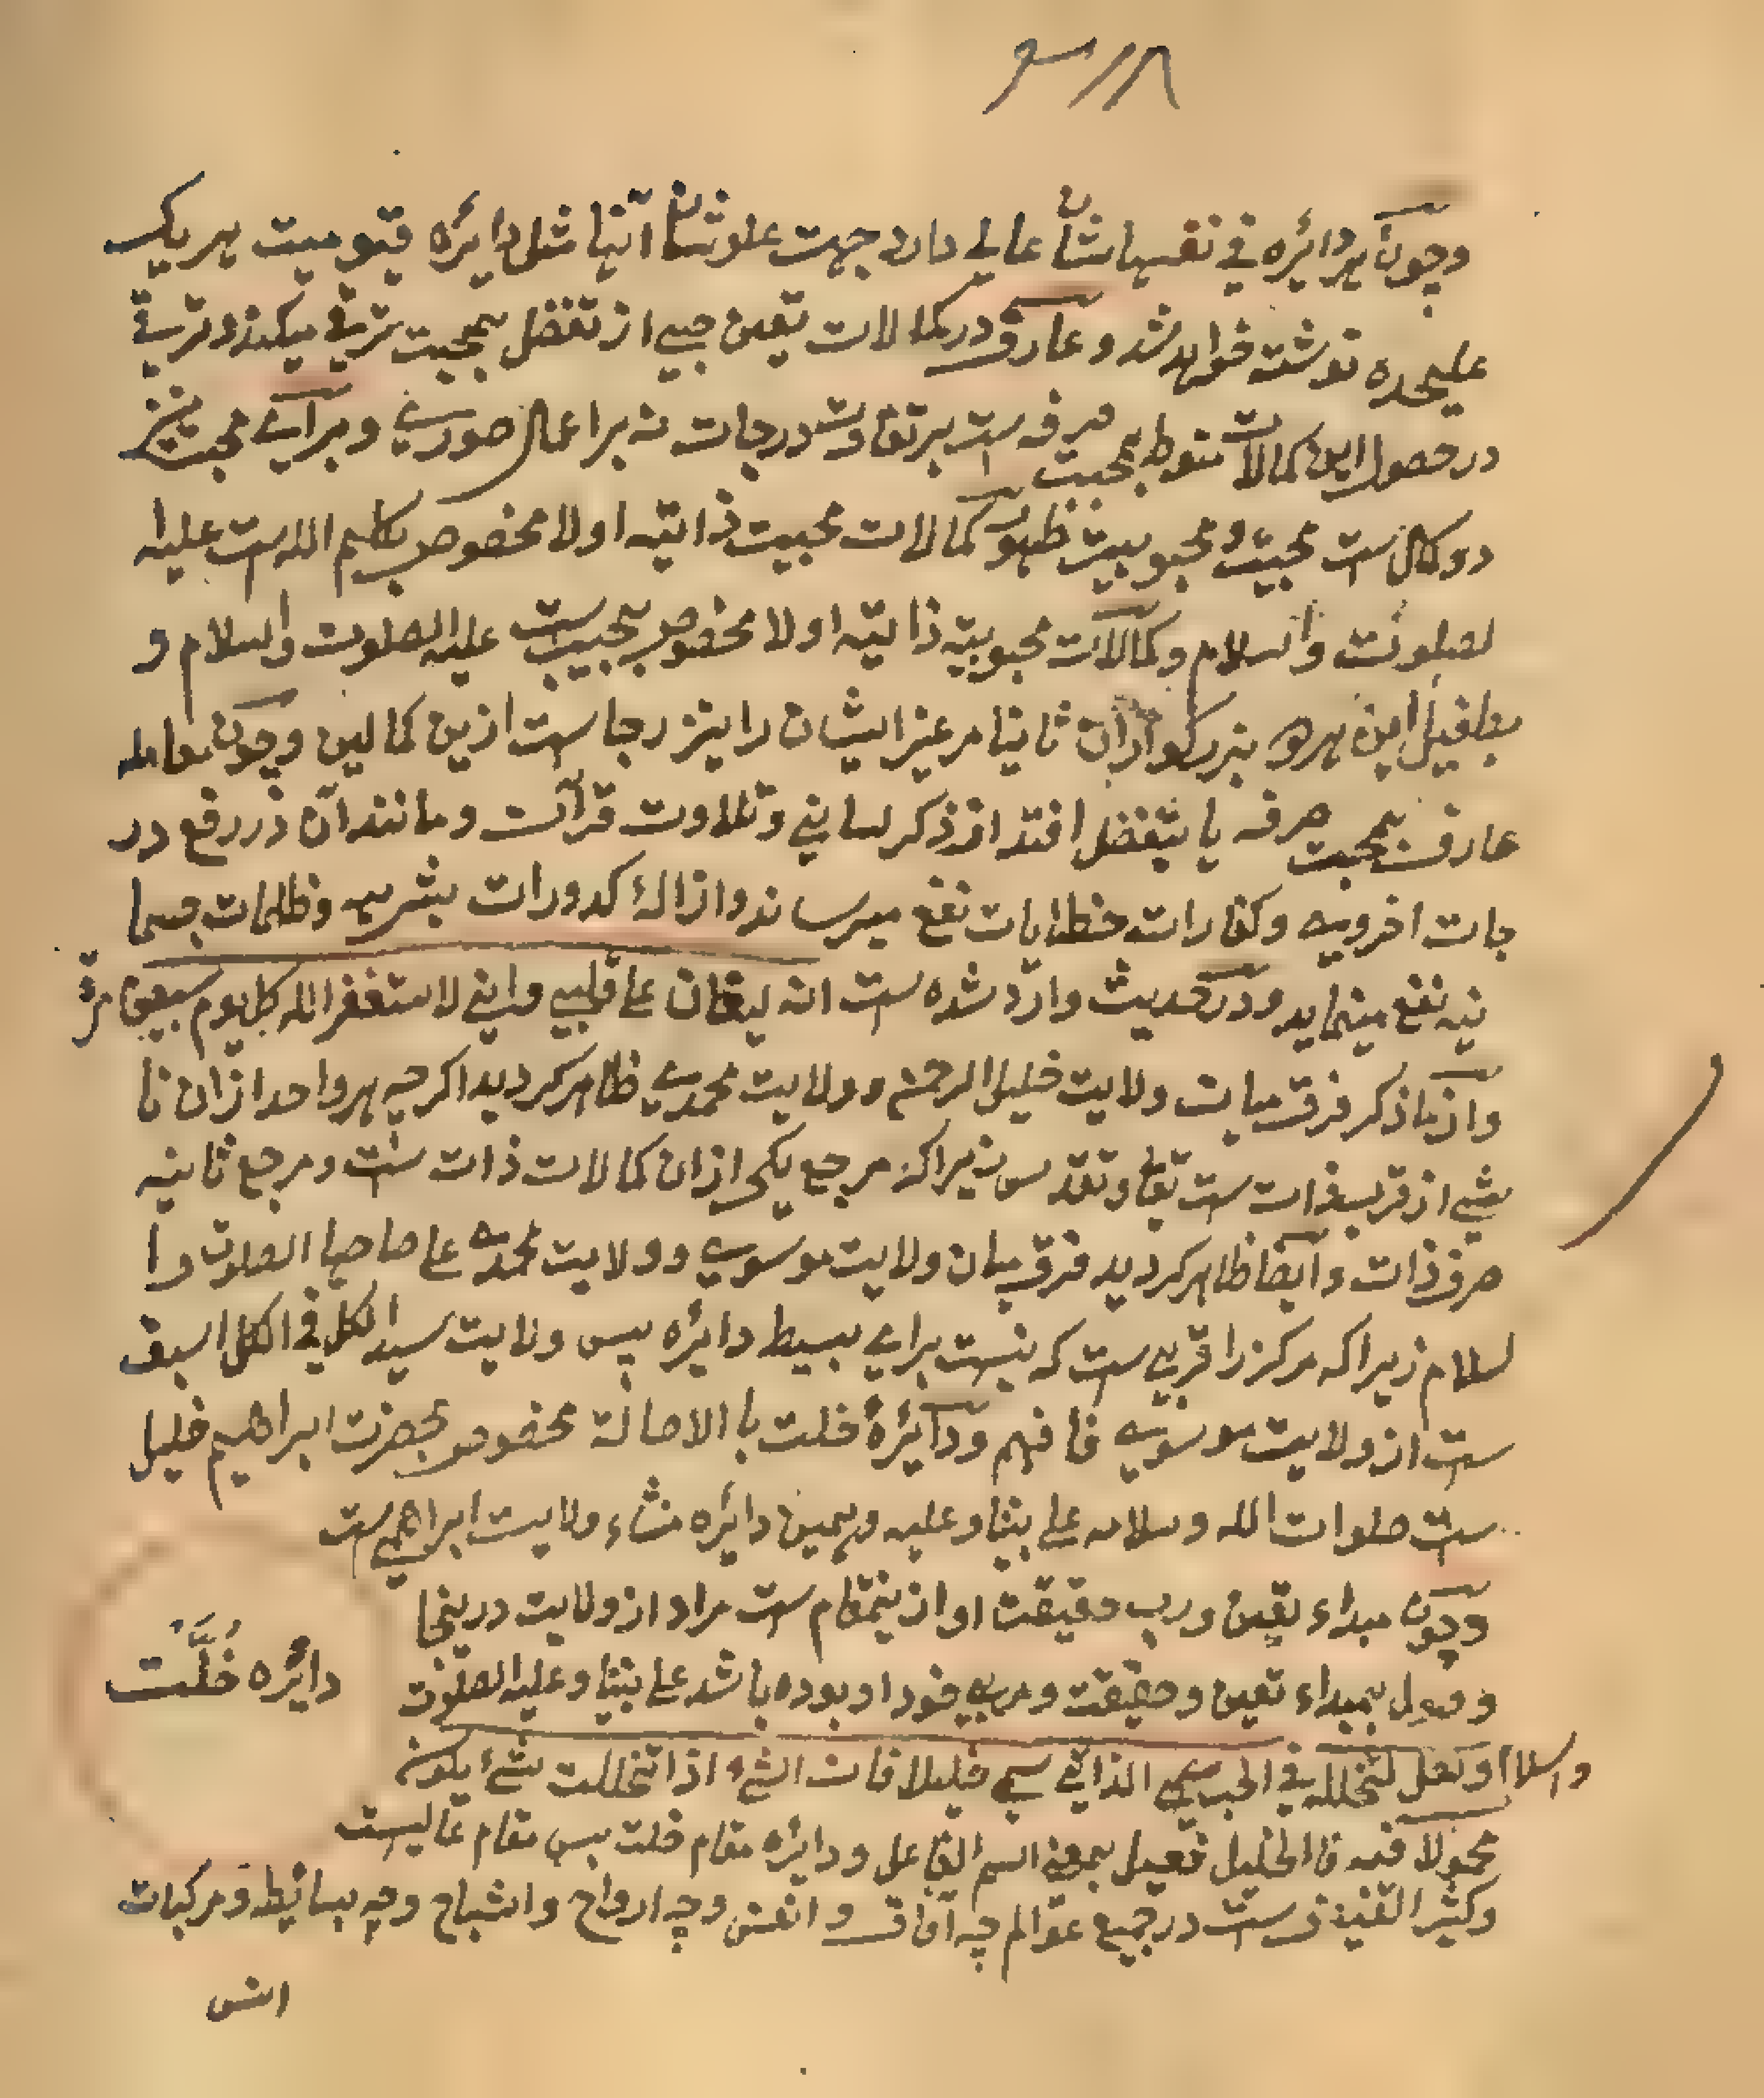 وچون هر دائره في نفسها شان عالي دارد جهت علو شان آنها مثل دايره قيوميت هر يک
عليحده نوشته خواهد شد و عارف در کمالات تعين حبي از تفضل بمحبت ترقي ميکند و ترقي
در حصول اين کمالات منوط بمحبت صرفه ست بر تفاوت درجات نه بر اعمال صوري و براي محبت نيز
دو کمال ست محبيت و محبوبيت ظهور کمالات محبيت ذاتيه اولا مخصوص بکليم الله ست عليه
لصلوت والسلام و کمالات محبوبيه ذاتيه اولا مخصوص بحبيب ست عليه الصلوت والسلام و
بطفيل اين هر دو بزرگواران ثانيا مر غير ايشان را نيز رجا ست ازين کمالين و چون معامله
عارف بمحبت صرفه يا بتفضل افتد از ذکر لساني و تلاوت قرآت و مانند آن در رفع در
جات اخرويه و کفارات خطايات نفع ميرساند و ازالهٔ کدورات بشريه و ظلمات جسما
نيه نفع مينمايد و در حديث وارد شده ست انه ليغان علي قلبي واني لاستغفر الله کل يوم سبعين مرّة
و از ما ذکر فرق ميان ولايت خليل الرحمن و ولايت محمدي ظاهر کرديد اکرچه هر واحد ازان نا
شي از قرب ذات ست تعا و تقدس زيراکه مرجع يکي ازان کمالات ذات ست و مرجع ثانيه
صرف ذات و ايضا ظاهر کرديد فرق ميان ولايت موسوي و ولايت محمدي علي صاحبها الصلوت وا
لسلام زيراکه مرکز را قربي ست که نيست براي بسيط دايره پس ولايت سيد الکل في الکل اسبق
ست از ولايت موسويه فافهم و دائرهٔ خلت با الاصالة مخصوص بحضرت ابراهيم خليل
ست صلوات الله وسلامه علي نبينا وعليه و همين دائره منشاء ولايت ابراهيمي ست
و چون مبداء تعين و رب حقيقت او ازينمقام ست مراد از ولايت درينجا
وصول بمبداء تعين و حقيقت و مربي خود او بوده باشد علي نبينا وعليه الصلوت
والسلام ولعل لتخلله في الحب الذاتي سمي خليلا فان الشيء اذا تخللت شيء يکون
محمولا فيه فالخليل فعيل بمعني اسم الفاعل و دايره مقام خلت بس مقام عاليست
و کثير الفيض ست در جميع عوالم چه آفاق و انفس و چه ارواح و اشباح و چه بسائط و مرکبات
دائره خُلَّت